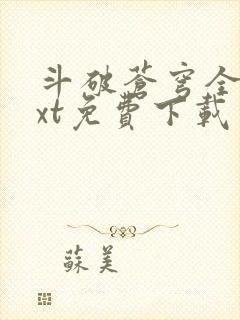 斗破蒼穹全
xt免費下載
蘇美